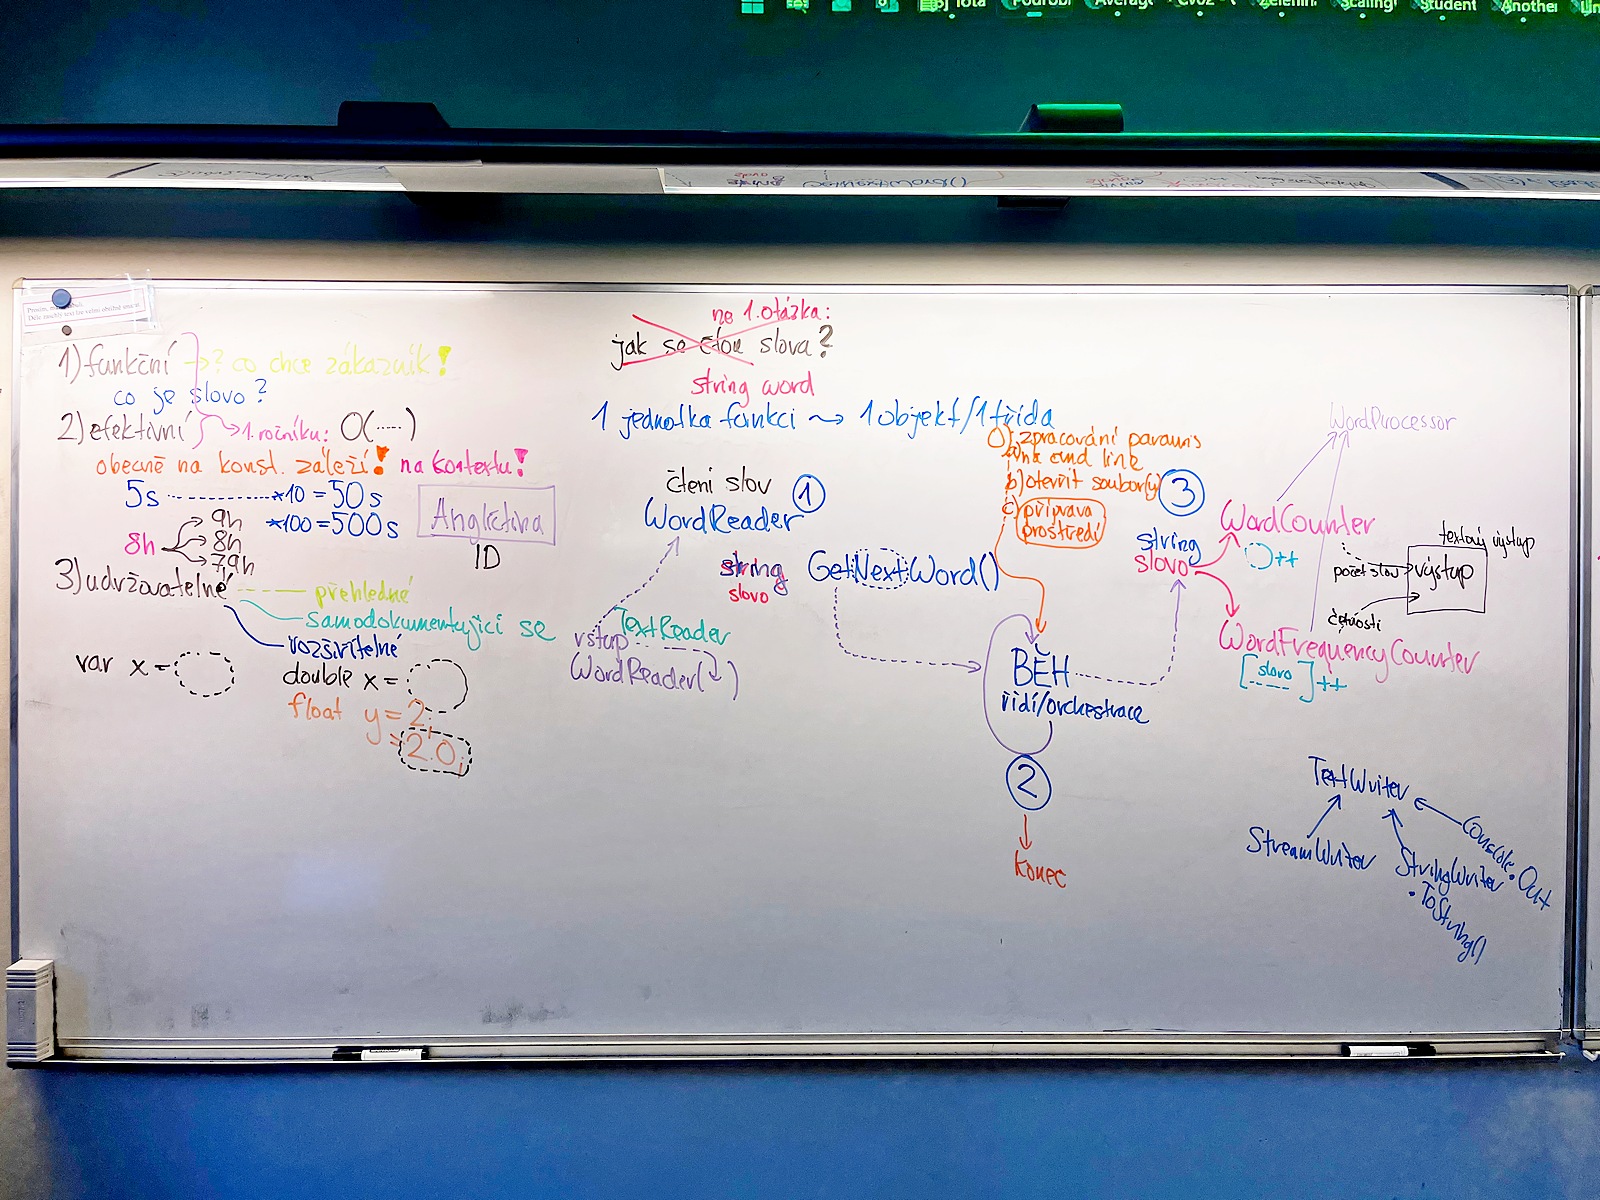 Student
Another
1) funkční -> ? co chce zákazník!
co je slovo?
2) efektivní -> 1. ročníku: O(.....)
obecně na konst. záleží! na kontextu!
5s ........... *10 = 50s
*100 = 500s
8h
9h
8h
7,9h
Angličtina
ID
3) udržovatelné
přehledné
samodokumentující se
rozšiřitelné
var x =
double x =
float y = 2;
= 2.0;
ne 1. otázka:
jak se čtou slova?
string word
1 jednotka funkcí ~> 1 objekt/1 třída
čtení slov
1
WordReader
string
slovo
GetNextWord()
vstup
TextReader
WordReader( )
0) zpracování params
a) na cmd line
b) otevřít soubor(y)
c) příprava
prostředí
BĚH
řídí/orchestrace
2
konec
3
string
slovo
WordProcessor
WordCounter
++
WordFrequencyCounter
[slovo]++
textový výstup
počet slov
výstup
četnosti
TextWriter
StreamWriter
StringWriter
.ToString()
Console.Out